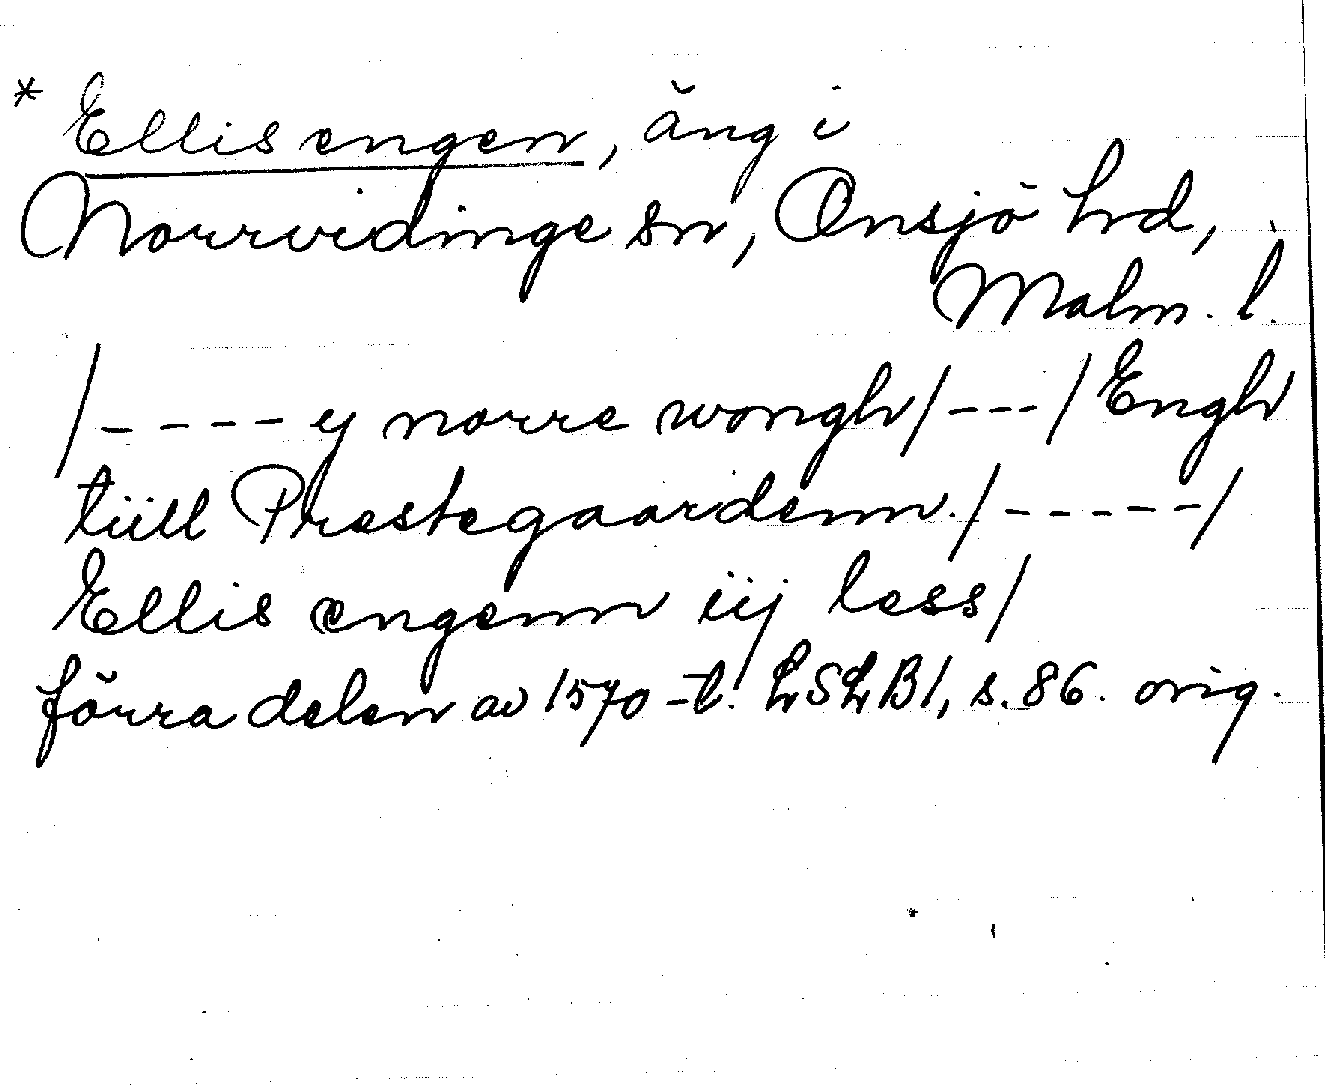 * Ellis engen, äng i
Norrvidinge sn, Onsjö hd,
Malm. l.
/---- ij norre wongh/---/ Engh
tiill Prestegaardenn./-----/
Ellis engenn iij less/
förra delen av 1570-t. LSLB1, s. 86. orig.